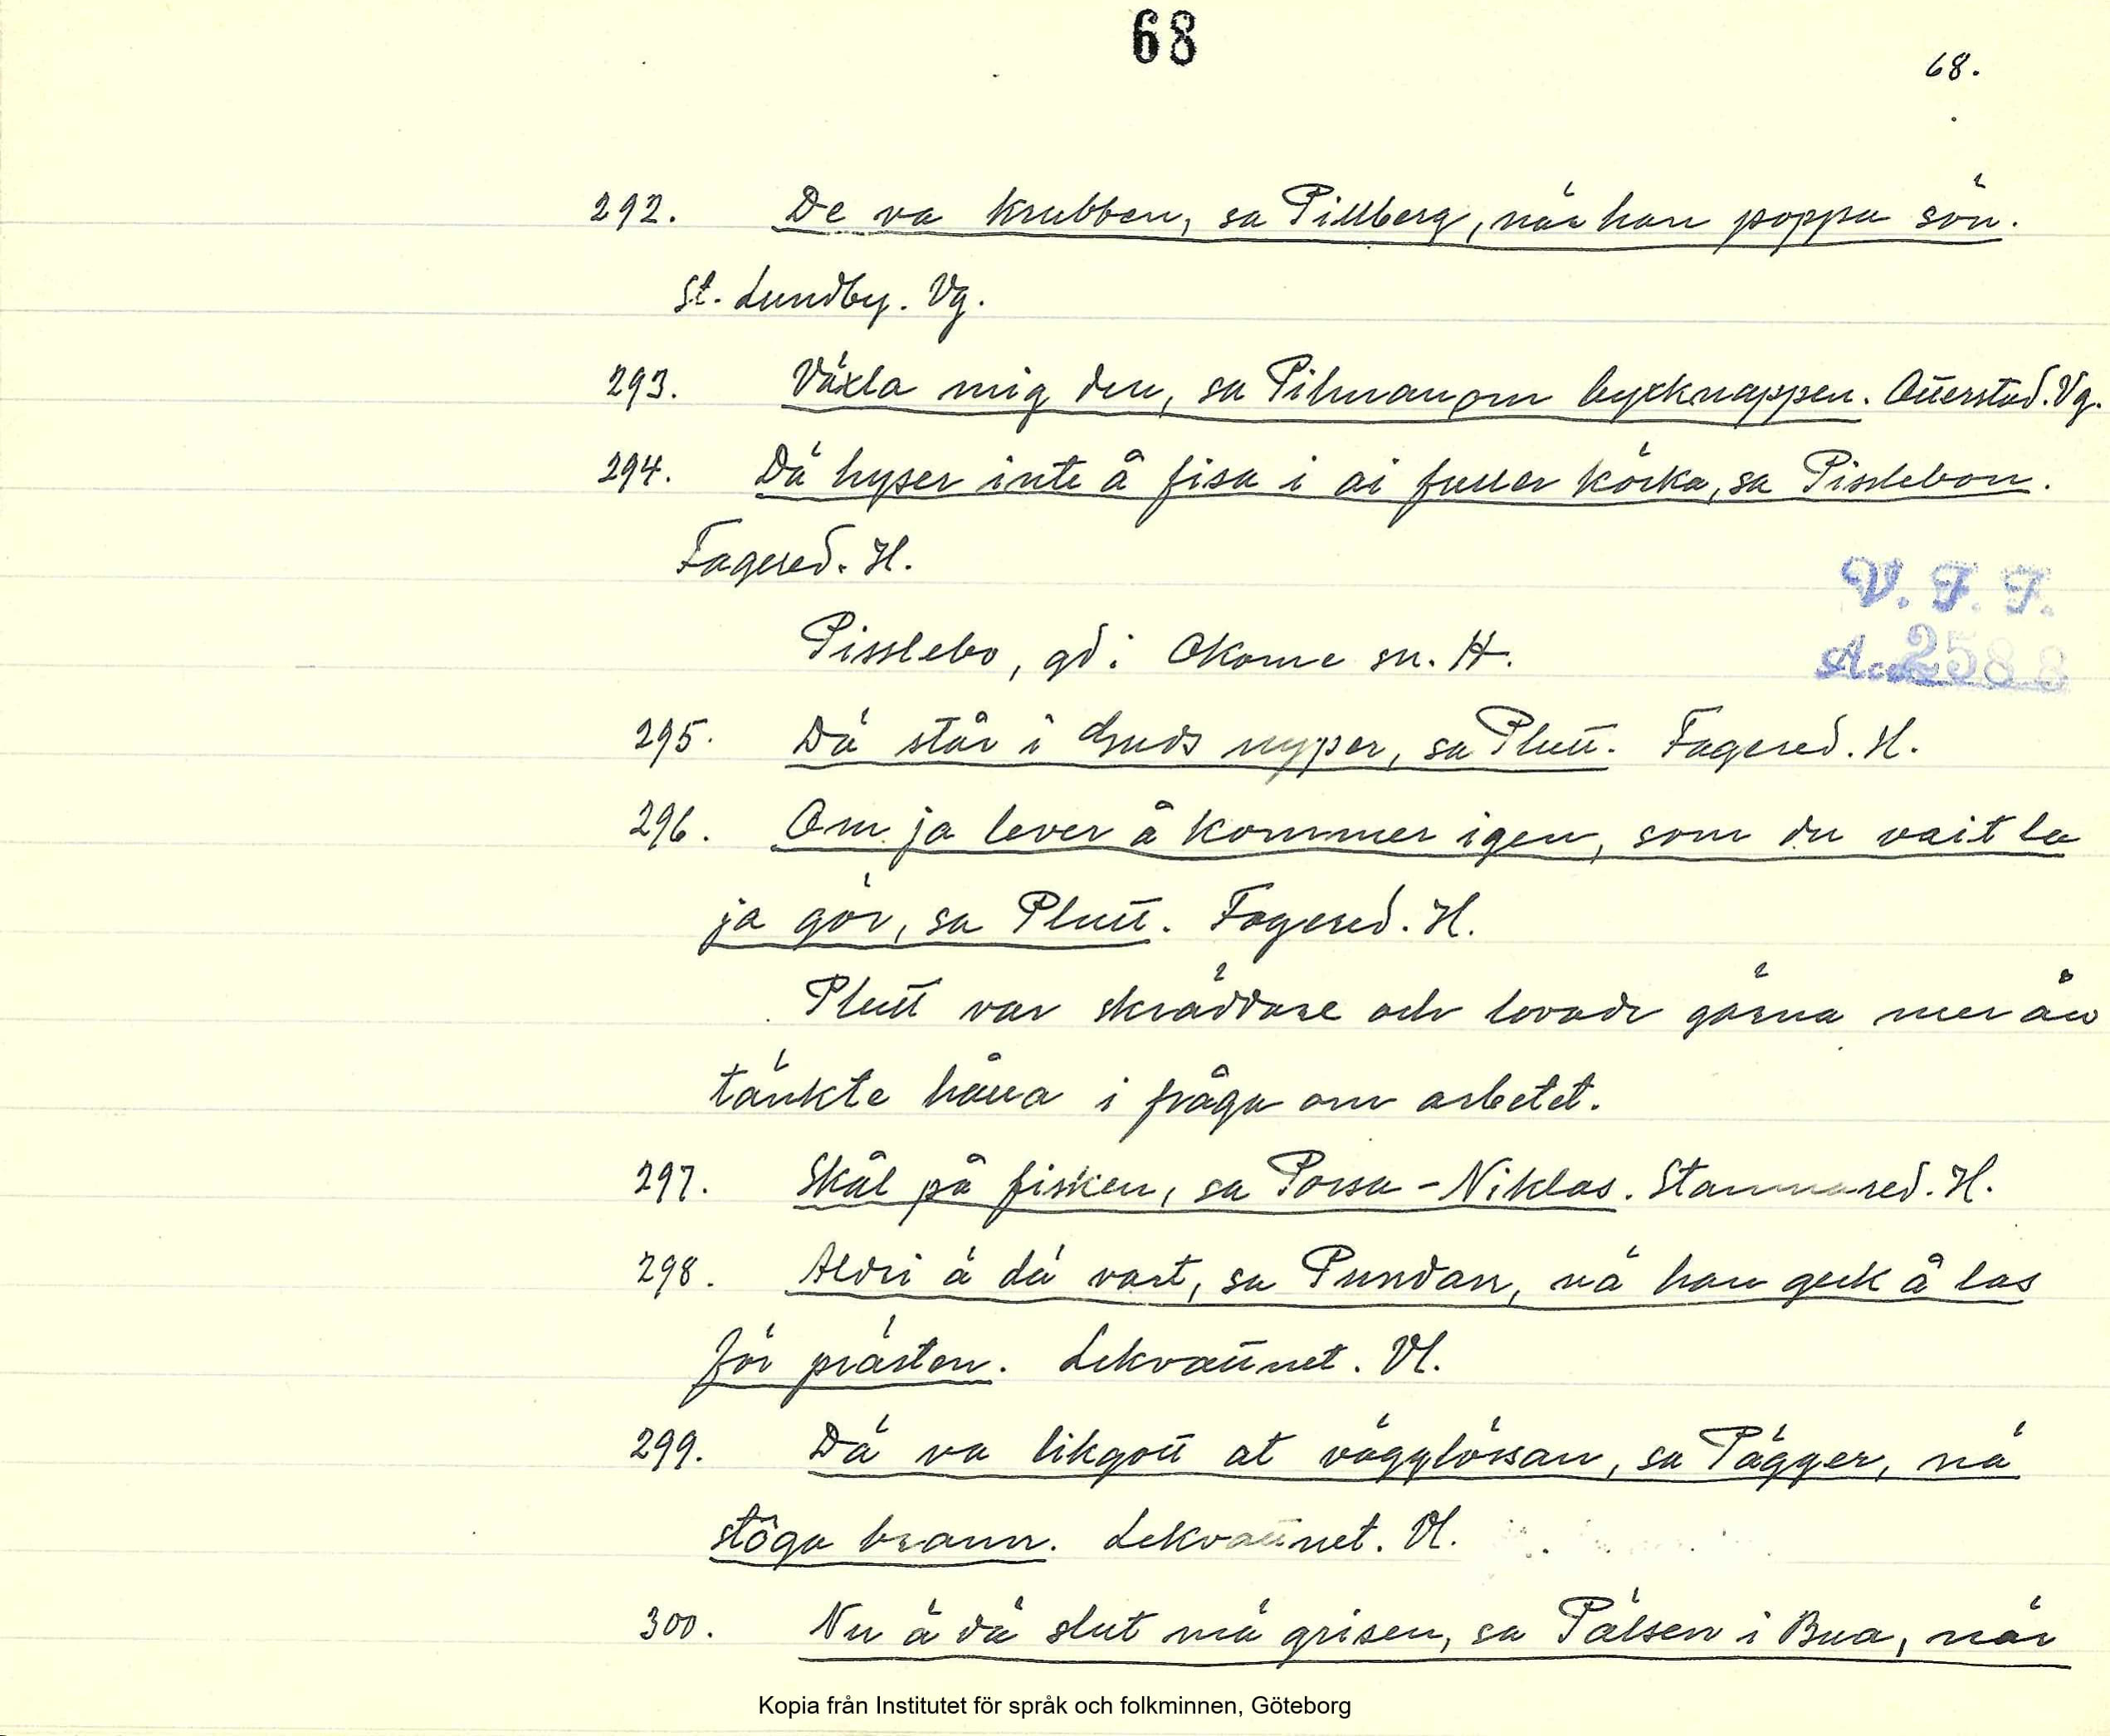 68
68.
292. De va krubben, sa Pillberg, när han poppa sön.
St. Lundby. Vg.
293. Växla mig den, sa Pihman om byxknappen. Otterstad. Vg.
294. Dä hyser inte å fisa i ai fuller körka, sa Pisslebon.
Fagered. H.
V. F. F.
Pisslebo, gd i Okome sn. H.
Acc 2588
295. Dä står i Guds nyper, sa Plutt. Fagered. H.
296. Om ja lever å kommer igen, som du vait la
ja gör, sa Plutt. Fagered. H.
Plutt var skräddare och lovade gärna mer än
tänkte hålla i fråga om arbetet.
297. Skål på fisken, sa Porsa-Niklas. Stamnared. H.
298. Aldri ä dä vart, sa Pundan, nä han gick å las
för prästen. Lekvattnet. Vl.
299. Dä va likgott at vägglössan, sa Pägger, nä
stôga brann. Lekvattnet. Vl.
300. Nu ä dä slut mä grisen, sa Pälsen i Bua, när
Kopia från Institutet för språk och folkminnen, Göteborg